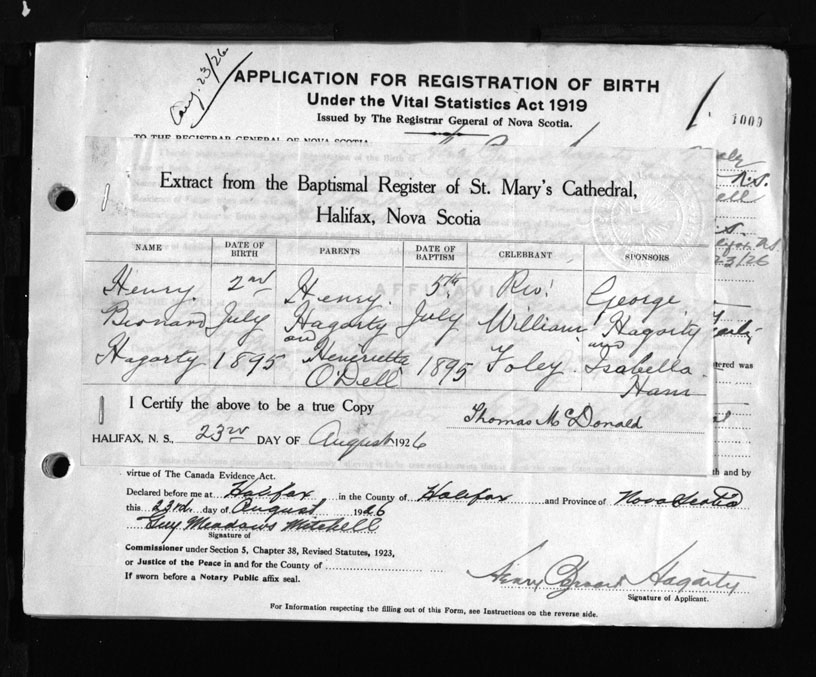 Aug. 23/26
APPLICATION FOR REGISTRATION OF BIRTH
Under the Vital Statistics Act 1919
Issued by The Registrar General of Nova Scotia.
1009
TO THE REGISTRAR GENERAL OF NOVA SCOTIA
N.S.
Extract from the Baptismal Register of St. Mary's Cathedral,
Halifax, Nova Scotia
23/26
NAME DATE OF BIRTH PARENTS DATE OF BAPTISM CELEBRANT SPONSORS
Henry 2nd Henry 5th Rev. George
Bernard July Hagarty July William Hagarty
and and
Hagarty 1895 Henriette 1895 Foley Isabella
O'Dell Ham
ered was
I Certify the above to be a true Copy
Thomas McDonald
HALIFAX, N. S., 23rd DAY OF August 1926
th and by
virtue of The Canada Evidence Act.
Declared before me at Halifax in the County of Halifax and Province of Nova Scotia
this 23rd day of August 1926
Guy Meadows Mitchell
Signature of
Commissioner under Section 5, Chapter 38, Revised Statutes, 1923,
or Justice of the Peace in and for the County of
If sworn before a Notary Public affix seal.
Henry Bernard Hagarty
Signature of Applicant.
For Information respecting the filling out of this Form, see Instructions on the reverse side.